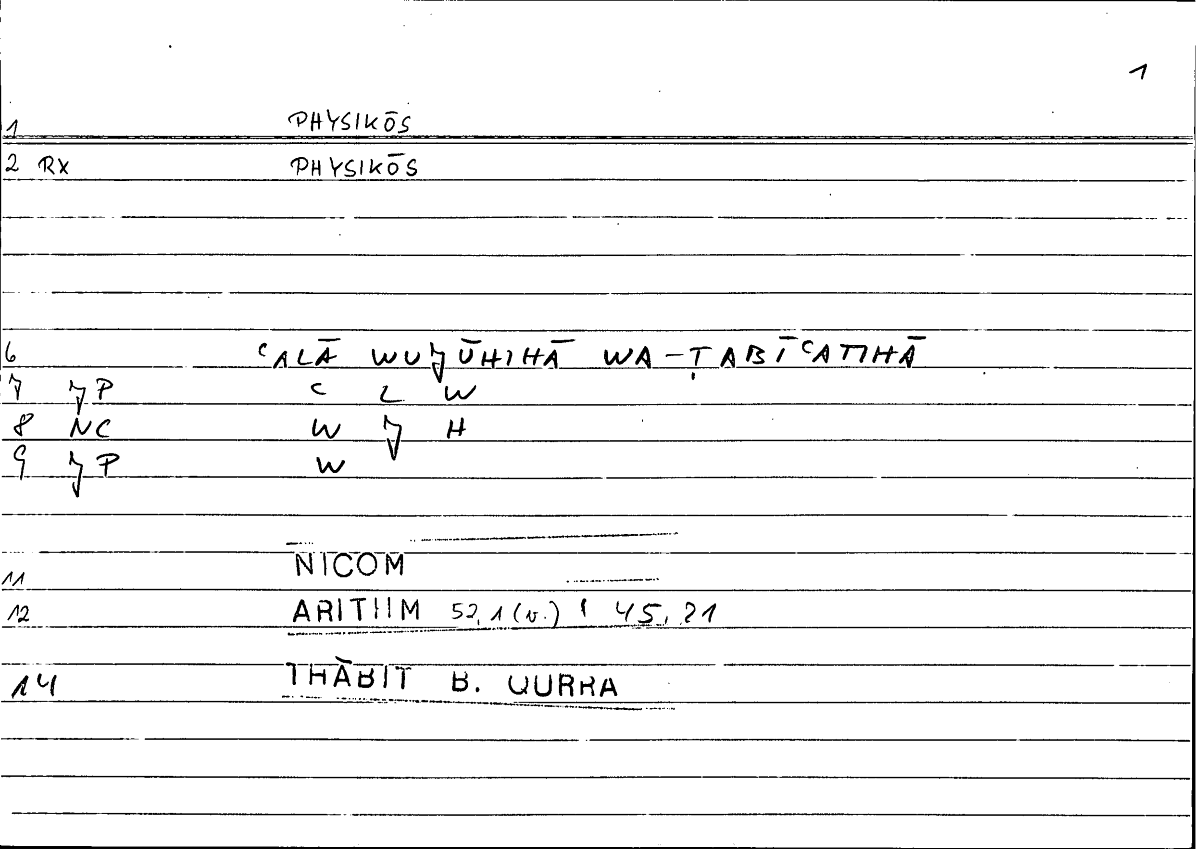 1
1 PHYSIKŌS
2 RX PHYSIKŌS
6 ʿALĀ WUJŪHIHĀ WA-ṬABĪʿATIHĀ
7 JP ʿ L W
8 NC W J H
9 JP W
11 NICOM
12 ARITHM 52,1 (v.) : 45,21
14 THĀBIT B. QURRA